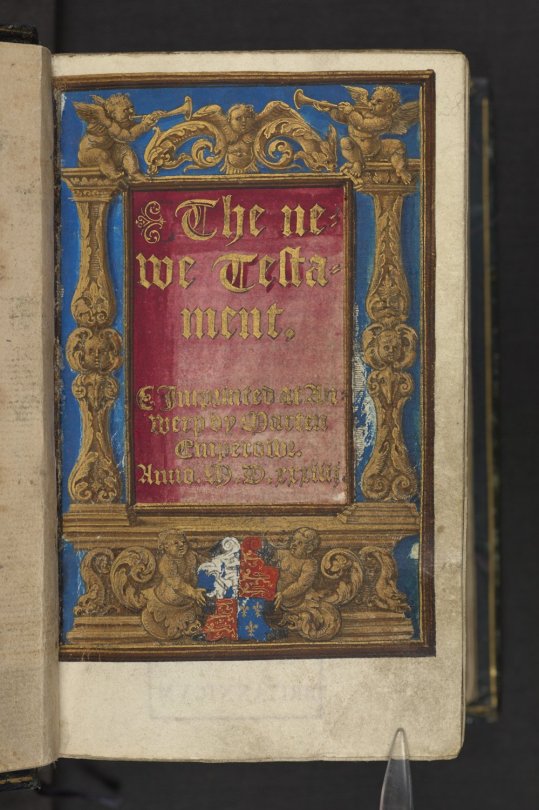 The ne=
we Testa-
ment.
Imprinted at An
werp by Marten
Emperowr.
Anno. M. D. xxxiiii